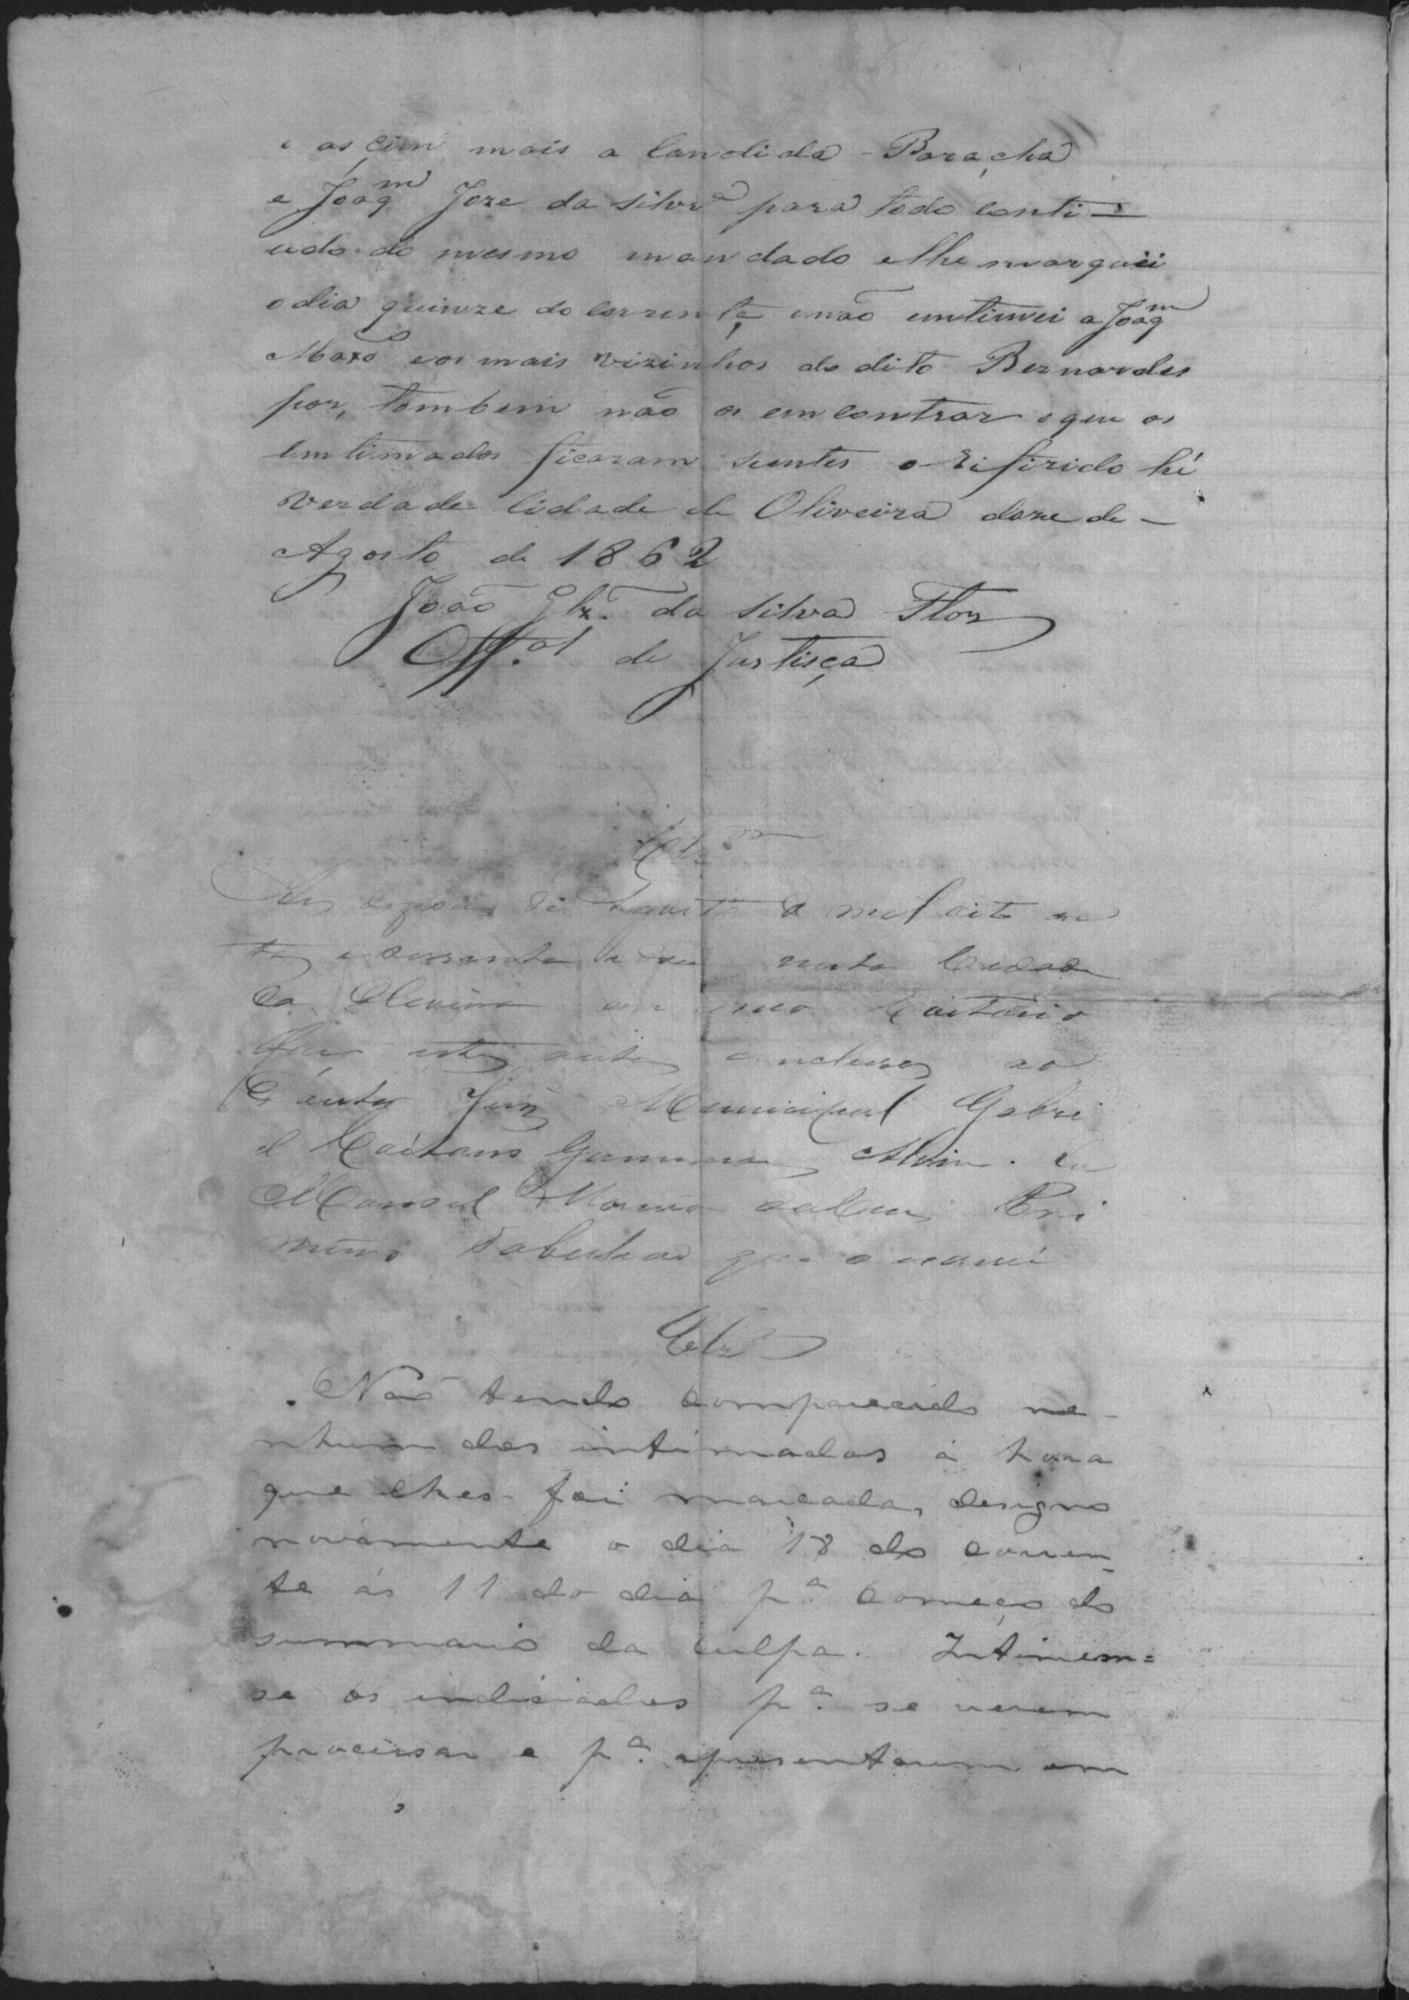 e as çim mais a Candida Baracha
e Joaq.m Joze da Silvr.a para todo conti
udo do mesmo mandado e lhe marquei
o dia quinze do corrente, e não emtimei a Joaq.m
e os mais vizinhos do dito Bernardes
por, tombem não os emcontrar e que os
emtimados ficaram sientes o rifirido hé
verdade Cidade de Oliveira doze de
Agosto de 1862
João Glz. da Silva Flor
Off.al de Justisça
Clz.m
de Agosto de mil oito cen
tos e sessenta e dous nesta Cidade
da Oliveira em meu Cartorio
faço estes autos conclusos ao
Doutor Juiz Municipal Gabri
el Caitano Alvim. Eu
Manoel Moreira
Tabeliao que o escrevi
Clz
Não tendo comparecido ne
nhum dos intimados á hora
que lhes foi marcada, designo
novamente o dia 18 do corren
te ás 11 do dia p.a começo do
summario da culpa. Intimem=
se os indiciados p.a se verem
processar e p.a apresentarem em